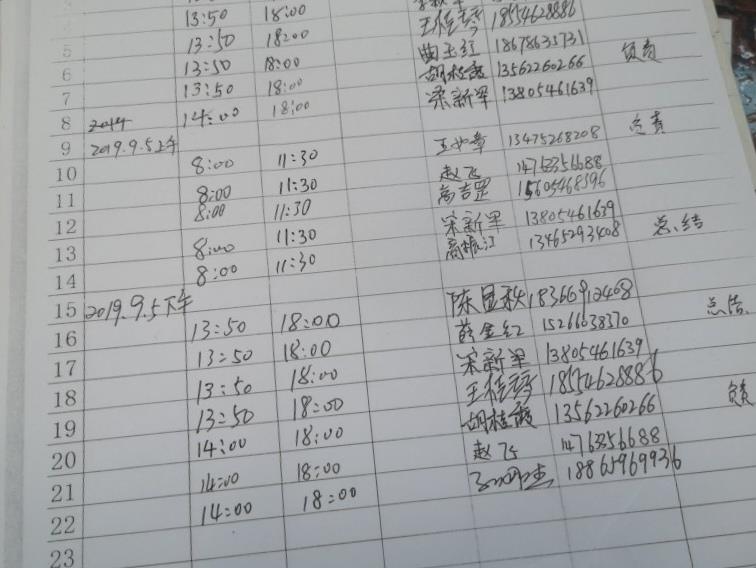 13:50 18:00
13:50 18:00 王桂琴 18554628886
5 13:50 18:00 曲玉红 18678635731
6 13:50 18:00 胡桂霞 13562260266 负责
7 14:00 18:00 宋新军 13805461639
8 2019
9 2019.9.5上午 8:00 11:30 13475268208 负责
10 8:00 11:30 赵飞 14763356688
11 8:00 11:30 高吉罡 15605468596
12 8:00 11:30 宋新军 13805461639
13 8:00 11:30 高振江 13465293408 总结
14
15 2019.9.5下午 13:50 18:00 陈显秋 18366912408
16 13:50 18:00 薛金红 15266038370 总结
17 13:50 18:00 宋新军 13805461639
18 13:50 18:00 王桂琴 18554628886
19 14:00 18:00 胡桂霞 13562260266 负责
20 14:00 18:00 赵飞 14763356688
21 14:00 18:00 18865969936
22
23